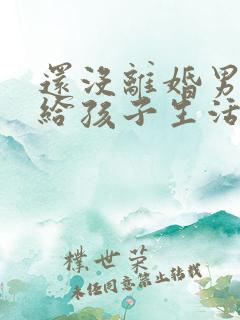 還沒離婚男
給孩子生活
樸世榮
未經同意禁止轉載